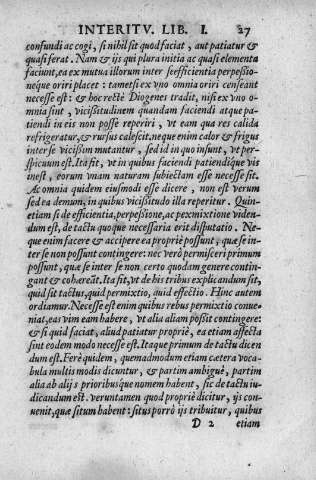 INTERITV. LIB. I. 27
confundi ac cogi, si nihil sit quod faciat, aut patiatur &
quasi ferat. Nam & ijs qui plura initia ac quasi elementa
faciunt, ea ex mutua illorum inter se efficientia perpessio-
neque oriri placet: tametsi ex vno omnia oriri censeant
necesse est: & hoc rectè Diogenes tradit, nisi ex vno o-
mnia sint, vicissitudinem quandam faciendi atque pa-
tiendi in eis non posse reperiri, vt eam qua res calida
refrigeratur, & rursus calescit. neque enim calor & frigus
inter se vicissim mutantur, sed id in quo insunt, vt per-
spicuum est. Ita fit, vt in quibus faciendi patiendíque vis
inest, eorum vnam naturam subiectam esse necesse sit.
Ac omnia quidem eiusmodi esse dicere, non est verum
sed ea demum, in quibus vicissitudo illa reperitur. Quin-
etiam si de efficientia, perpessione, ac permixtione viden-
dum est, de tactu quoque necessaria erit disputatio. Ne-
que enim facere & accipere ea propriè possunt, quæ se in-
ter se non possunt contingere: nec verò permisceri primum
possunt, quæ se inter se non certo quodam genere contin-
gant & cohæreāt. Ita fit, vt de his tribus explicandum sit,
quid sit tactus, quid permixtio, quid effectio. Hinc autem
ordiamur. Necesse est enim quibus rebus permixtio conue-
niat, eas vim eam habere, vt alia aliam possit contingere:
& si quid faciat, aliud patiatur propriè, ea etiam affecta
sint eodem modo necesse est. Itaque primum de tactu dicen
dum est. Ferè quidem, quemadmodum etiam cætera voca-
bula multis modis dicuntur, & partim ambiguè, partim
alia ab alijs prioribusque nomem habent, sic de tactu iu-
dicandum est. veruntamen quod propriè dicitur, ijs con-
uenit, quæ situm habent: situs porrò ijs tribuitur, quibus
D 2 etiam